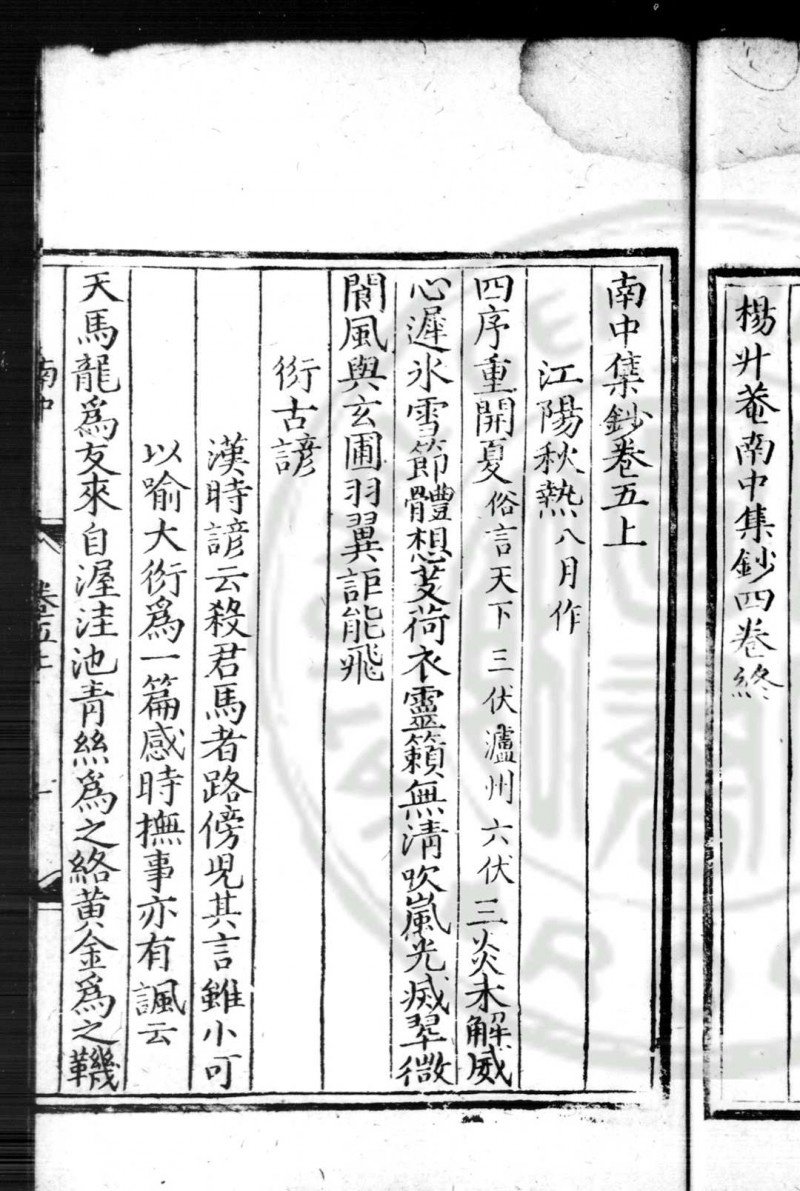 楊升菴南中集鈔四卷終
南中集鈔卷五上
江陽秋熱八月作
四序重開夏俗言天下三伏瀘州六伏三炎未解威
心遲氷雪節體想芰荷衣靈籟無淸吹嵐光減翠微
閬風與玄圃羽翼詎能飛
衍古諺
漢時諺云殺君馬者路傍児其言雖小可
以喻大衍爲一篇感時撫事亦有諷云
天馬龍爲友來自渥洼池青絲爲之絡黄金爲之鞿
南中
卷五上
一